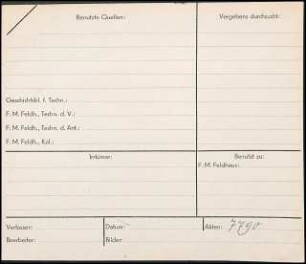 Benutzte Quellen:
Vergebens durchsucht:
Geschichtsbl. f. Techn.:
F. M. Feldh., Techn. d. V.:
F. M. Feldh., Techn. d. Ant.:
F. M. Feldh., Kal.:
Irrtümer:
Benützt zu:
F. M. Feldhaus:
Verfasser:
Datum:
Akten: 7790
Bearbeiter:
Bilder: